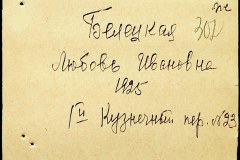 Белецкая 302
Любовь Ивановна
1925
1й Кузнечный пер. №23